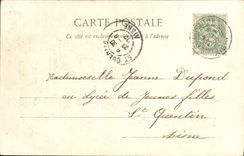 CARTE POSTALE
Ce côté est exclusivement réservé à l'adresse
ST QUENTIN
Mademoiselle Jeanne Dupond
au Lycée de Jeunes filles
St Quentin
Aisne